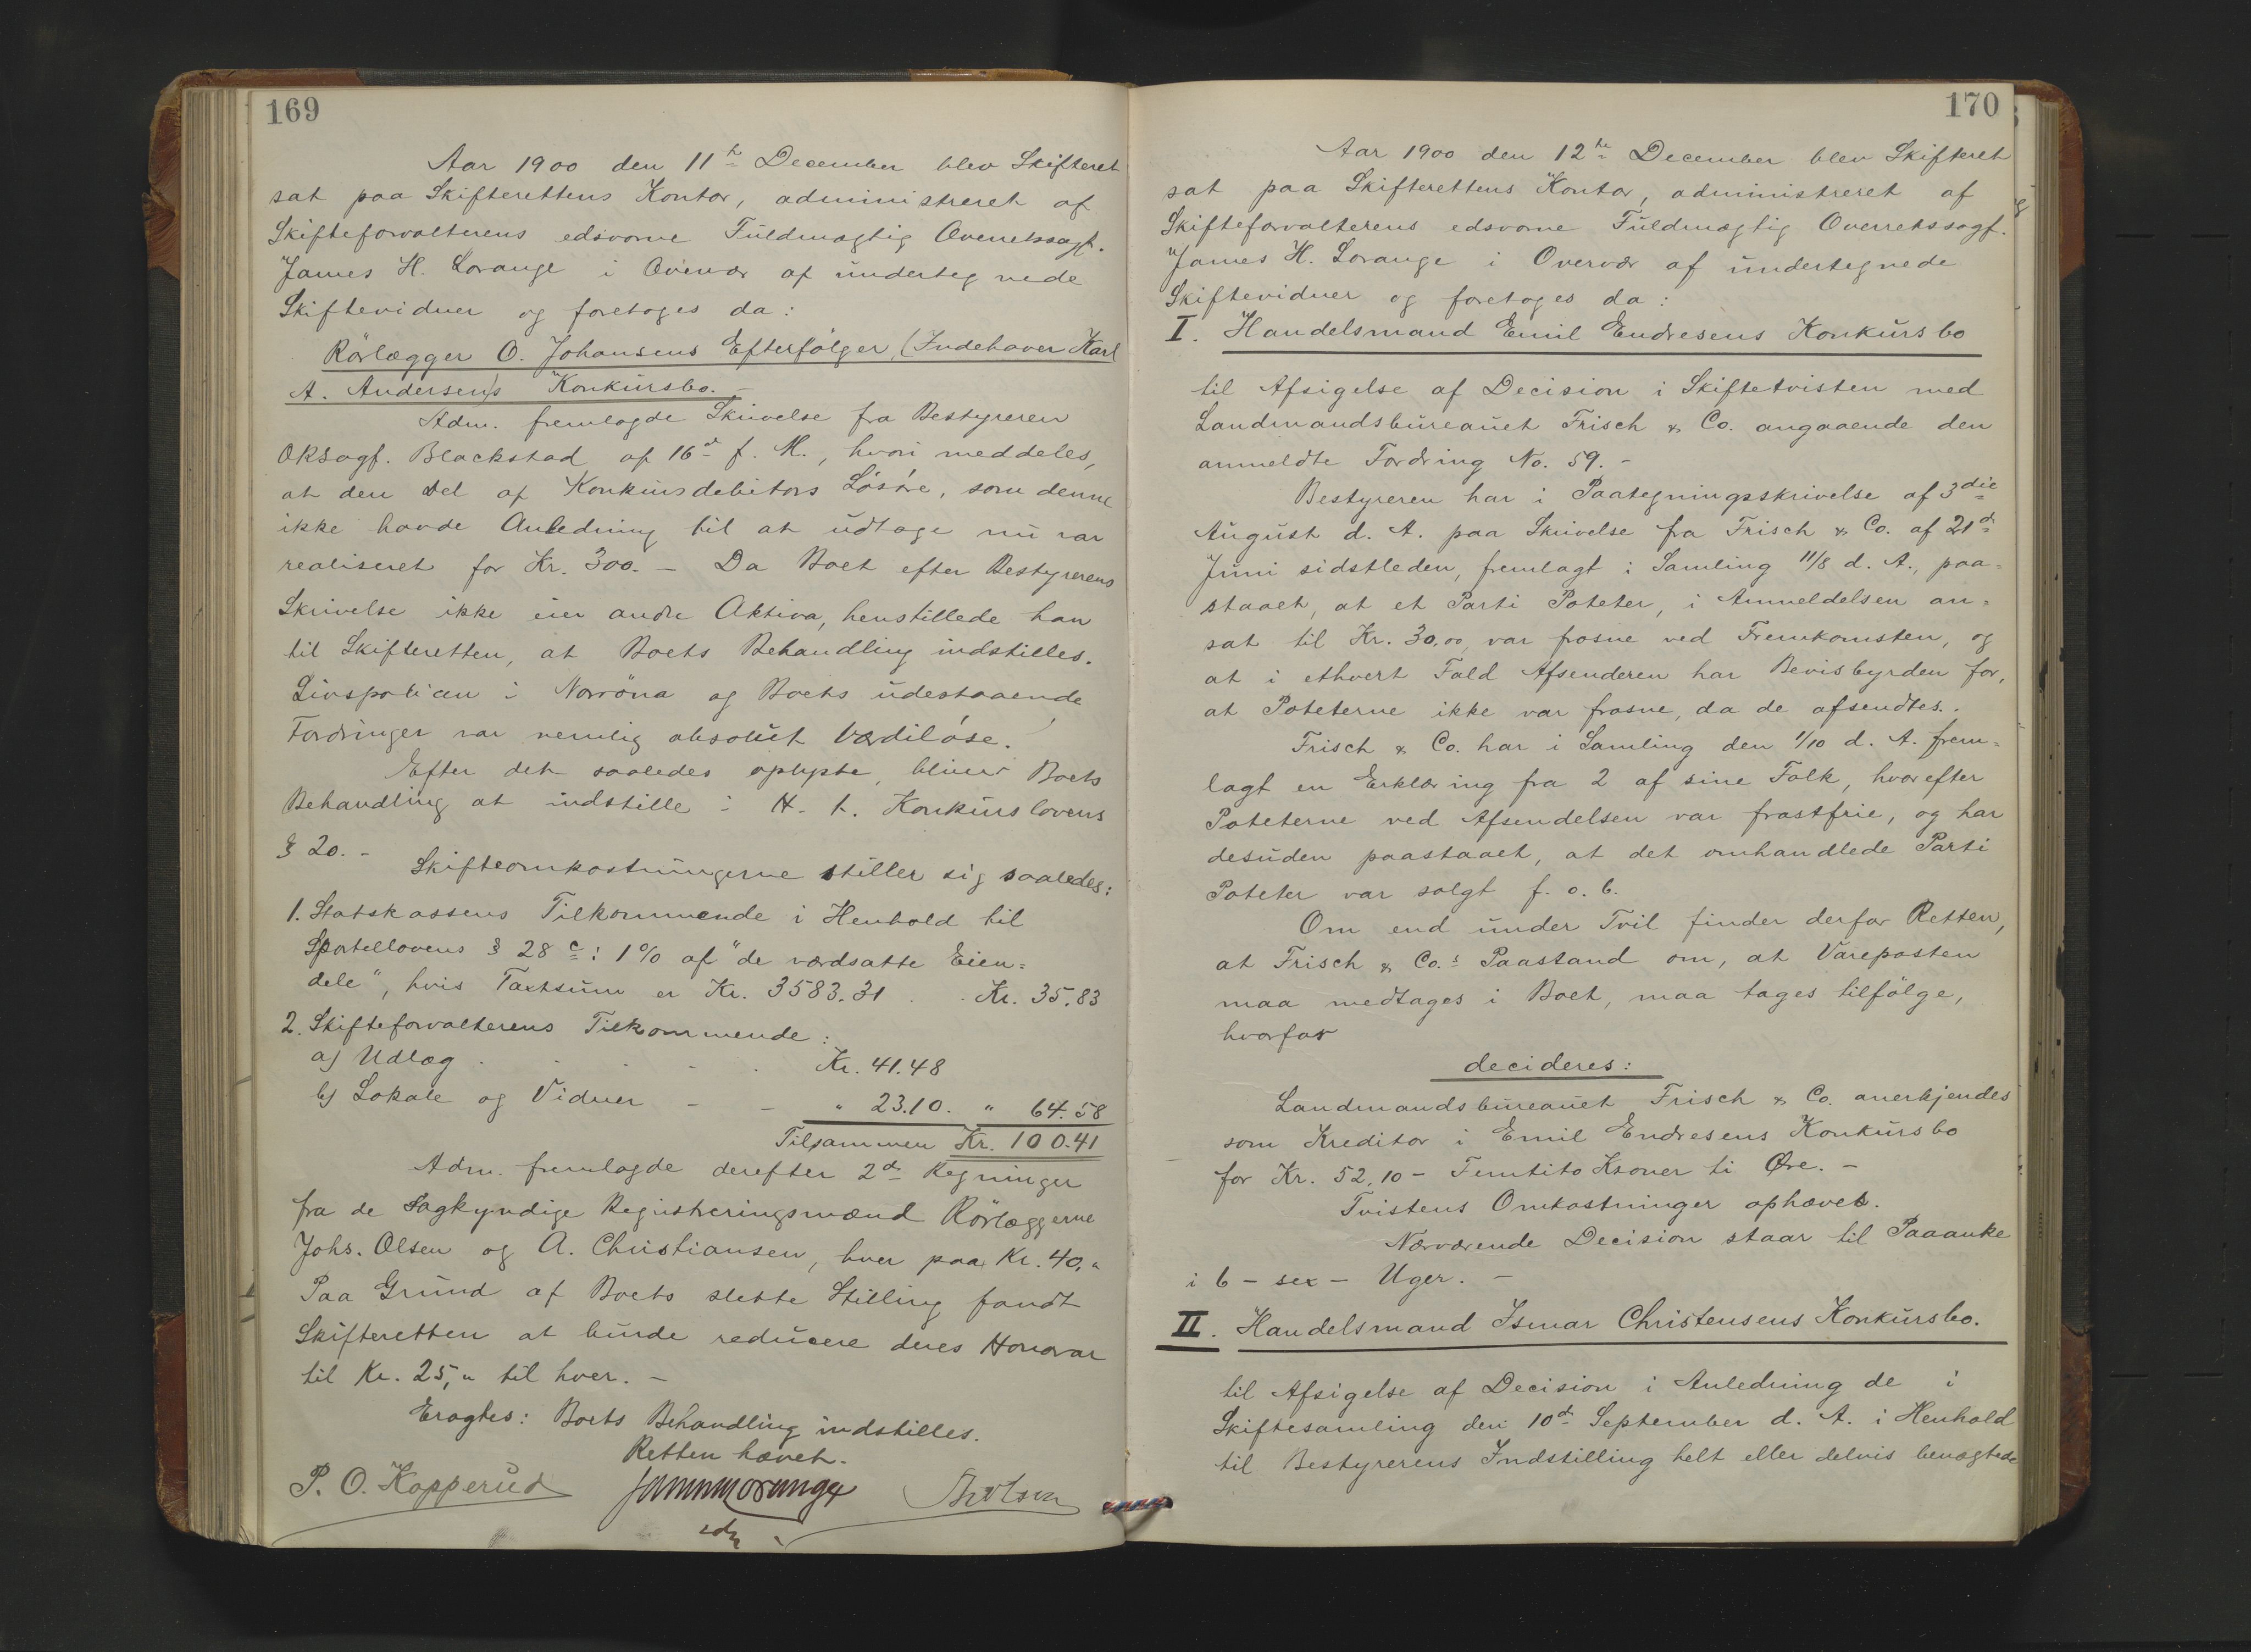 169
Aar 1900 den 11te December blev Skifteret
sat paa Skifterettens Kontor, administreret af
Skifteforvalterens edsvorne Fuldmægtig Overretssagf.
James H. Lorange i Overvær af underteg nede
Skiftevidner og foretoges da:
Rörlægger O. Johansens Efterfölger, (Indehaver Karl
A. Andersen)s Konkursbo. -
Adm. fremlagde Skrivelse fra Bestyreren
ORSagf. Blackstad af 16de f. M., hvori meddeles,
at den Del af Konkursdebitors Lösöre, som denne
ikke havde Anledning til at udtage nu var
realiseret for Kr. 300. - Da Boet efter Bestyrerens
Skrivelse ikke eier andre Aktiva, henstillede han
til Skifteretten, at Boets Behandling indstilles.
Livspolicen i Norröna og Boets udestaaende
Fordringer var nemlig absolut værdilöse.
Efter det saaledes oplyste, bliver Boets
Behandling at indstille i H. t. Konkurslovens
§ 20. -
Skifteomkostningerne stiller sig saaledes:
1. Statskassens Tilkommende i Henhold til
Sportellovens § 28 c: 1% af "de værdsatte Eien=
dele", hvis Taxtsum er Kr. 3583.31 . . Kr. 35.83
2. Skifteforvalterens Tilkommende:
a) Udlæg . . . . . Kr. 41.48
b) Lokale og Vidner - - " 23.10. " 64.58
Tilsammen Kr. 100.41
Adm. fremlagde derefter 2de Regninger
fra de sagkyndige Registreringsmænd Rörlæggerne
Johs. Olsen og A. Christiansen, hver paa Kr. 40,"
Paa Grund af Boets slette Stilling fandt
Skifteretten at burde reducere deres Honorar
til Kr. 25," til hver. -
Eragtes: Boets Behandling indstilles.
Retten hævet.
P. O. Kopperud James H Lorange
edsv
170
Aar 1900 den 12te December blev Skifteret
sat paa Skifterettens Kontor, administreret af
Skifteforvalterens edsvorne Fuldmægtig Overretssagf.
James H. Lorange i Overvær af undertegnede
Skiftevidner og foretoges da:
I. Handelsmand Emil Endresens Konkursbo
til Afsigelse af Decision i Skiftetvisten med
Landmandsbureauet Frisch & Co. angaaende den
anmeldte Fordring No. 59. -
Bestyreren har i Paategningsskrivelse af 3die
August d. A. paa Skrivelse fra Frisch & Co. af 21de
Juni sidstleden, fremlagt i Samling 11/8 d. A., paa=
staaet, at et Parti Poteter, i Anmeldelsen an=
sat til Kr. 30.00, var frosne ved Fremkomsten, og
at i ethvert Fald Afsenderen har Bevisbyrden for,
at Poteterne ikke var frosne, da de afsendtes.
Frisch & Co. har i Samling den 1/10 d. A. frem=
lagt en Erklæring fra 2 af sine Folk, hvorefter
Poteterne ved Afsendelsen var frostfrie, og har
desuden paastaaet, at det omhandlede Parti
Poteter var solgt f. o. b.
Om end under Tvil finder derfor Retten,
at Frisch & Co.s Paastand om, at Vareposten
maa medtages i Boet, maa tages tilfölge,
hvorfor
decideres:
Landmandsbureauet Frisch & Co. anerkjendes
som Kreditor i Emil Endresens Konkursbo
for Kr. 52,10 - Femtito Kroner ti Øre. -
Tvistens Omkostninger ophæves.
Nærværende Decision staar til Paaanke
i 6 - sex - Uger. -
II. Handelsmand Ismar Christensens Konkursbo.
til Afsigelse af Decision i Anledning de i
Skiftesamling den 10de September d. A. i Henhold
til Bestyrerens Indstilling helt eller delvis benægtede